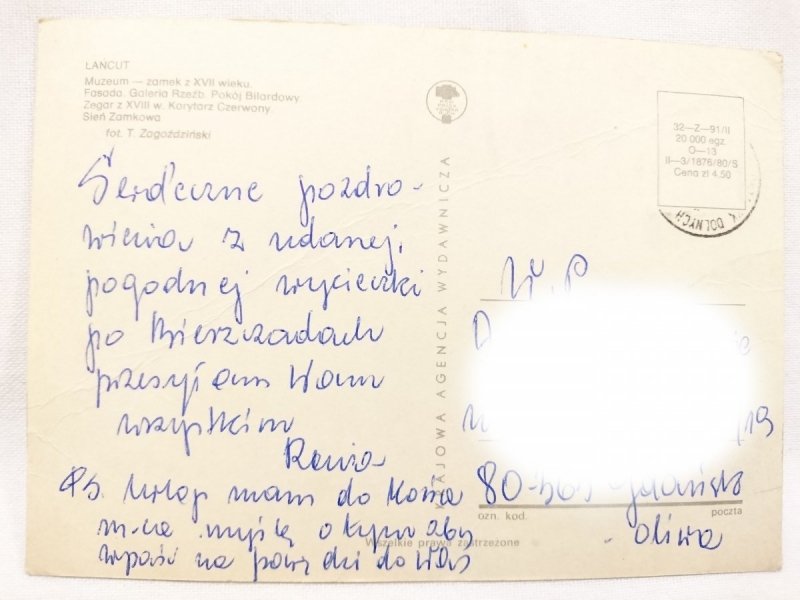 ŁAŃCUT
Muzeum — zamek z XVII wieku.
Fasada. Galeria Rzeźb. Pokój Bilardowy.
Zegar z XVIII w. Korytarz Czerwony.
Sień Zamkowa
fot. T. Zagoździński
Serdeczne pozdro-
wienia z udanej,
pogodnej wycieczki
po Bieszczadach
przesyłam Wam
wszystkim
Renia
Ps. Urlop mam do końca
m-ca myślę o tym aby
wpaść na parę dni do Was
KRAJOWA AGENCJA WYDAWNICZA
Wszelkie prawa zastrzeżone
32—Z—91/II
20 000 egz.
O—13
II—3/1876/80/S
Cena zł 4,50
DOLNYCH
W. P.
D
/19
80-565 Gdańsk
ozn. kod. poczta
- Oliwa